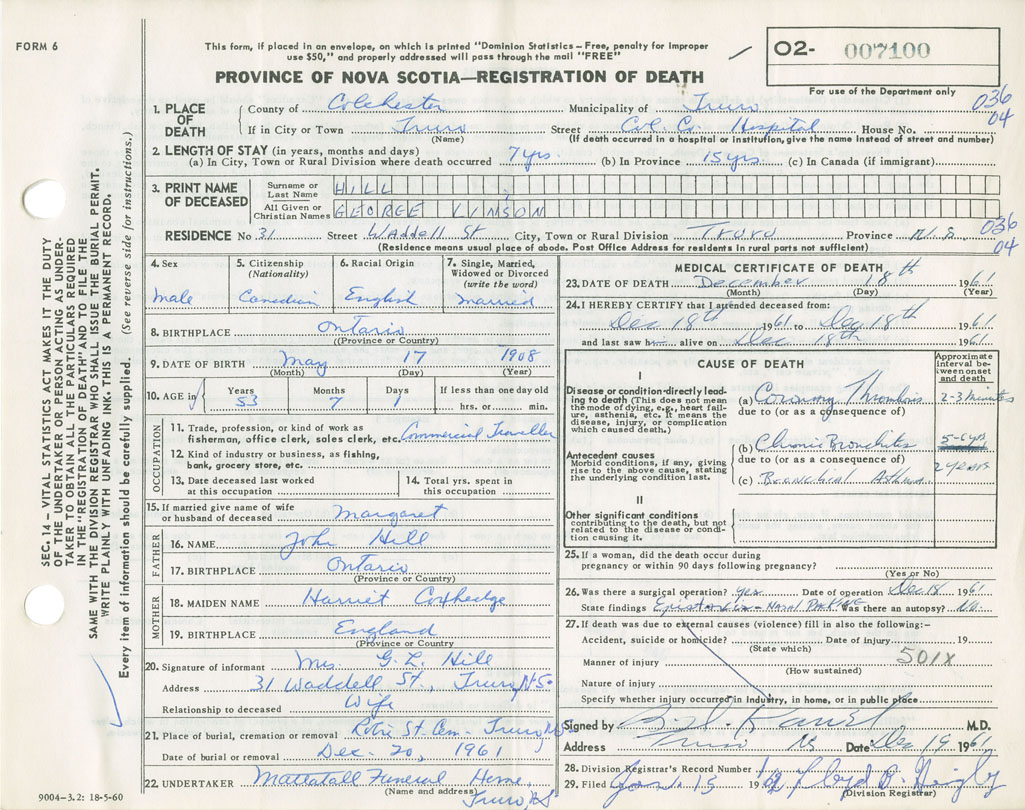 FORM 6
This form, if placed in an envelope, on which is printed "Dominion Statistics – Free, penalty for improper
use $50," and properly addressed will pass through the mail "FREE"
PROVINCE OF NOVA SCOTIA—REGISTRATION OF DEATH
O2- 007100
For use of the Department only
036
04
1. PLACE OF DEATH County of Colchester Municipality of Truro
If in City or Town Truro Street Col. Co. Hospital House No.
(Name) (If death occurred in a hospital or institution, give the name instead of street and number)
2. LENGTH OF STAY (in years, months and days)
(a) In City, Town or Rural Division where death occurred 7 yrs. (b) In Province 15 yrs. (c) In Canada (if immigrant)
3. PRINT NAME OF DECEASED Surname or Last Name HILL
All Given or Christian Names GEORGE LINSON
RESIDENCE No 31 Street Waddell St City, Town or Rural Division Truro Province N.S. 036
04
(Residence means usual place of abode. Post Office Address for residents in rural parts not sufficient)
SEC. 14 – VITAL STATISTICS ACT MAKES IT THE DUTY
OF THE UNDERTAKER OR PERSON ACTING AS UNDER-
TAKER TO OBTAIN ALL THE PARTICULARS REQUIRED
IN THE "REGISTRATION OF DEATH" AND TO FILE THE
SAME WITH THE DIVISION REGISTRAR WHO SHALL ISSUE THE BURIAL PERMIT.
WRITE PLAINLY WITH UNFADING INK. THIS IS A PERMANENT RECORD.
Every item of information should be carefully supplied. (See reverse side for instructions.)
4. Sex Male
5. Citizenship (Nationality) Canadian
6. Racial Origin English
7. Single, Married, Widowed or Divorced (write the word) Married
8. BIRTHPLACE Ontario
(Province or Country)
9. DATE OF BIRTH May 17 1908
(Month) (Day) (Year)
10. AGE in Years 53 Months 7 Days 1 If less than one day old
hrs. or min.
OCCUPATION
11. Trade, profession, or kind of work as
fisherman, office clerk, sales clerk, etc. Commercial Traveller
12. Kind of industry or business, as fishing,
bank, grocery store, etc.
13. Date deceased last worked at this occupation
14. Total yrs. spent in this occupation
15. If married give name of wife or husband of deceased Margaret
FATHER
16. NAME John Hill
17. BIRTHPLACE Ontario
(Province or Country)
MOTHER
18. MAIDEN NAME Harriet Coxhedge
19. BIRTHPLACE England
(Province or Country)
20. Signature of informant Mrs. G. L. Hill
Address 31 Waddell St., Truro, N.S.
Relationship to deceased Wife
21. Place of burial, cremation or removal Robie St. Cem. Truro NS
Date of burial or removal Dec. 20, 1961
22. UNDERTAKER Mattatall Funeral Home,
(Name and address) Truro NS
9004-3.2: 18-5-60
MEDICAL CERTIFICATE OF DEATH
23. DATE OF DEATH December 18th 1961
(Month) (Day) (Year)
24. I HEREBY CERTIFY that I attended deceased from:
Dec 18th 1961 to Dec 18th 1961
and last saw h alive on Dec 18th 1961
CAUSE OF DEATH
Approximate interval between onset and death
I
Disease or condition directly lead-
ing to death (This does not mean
the mode of dying, e.g., heart fail-
ure, asthenia, etc. It means the
disease, injury, or complication
which caused death.)
(a) Coronary Thrombosis 2-3 minutes
due to (or as a consequence of)
(b) Chronic Bronchitis 5-6 yrs
due to (or as a consequence of)
Antecedent causes
Morbid conditions, if any, giving
rise to the above cause, stating
the underlying condition last.
(c) Bronchial Asthma 2 years
II
Other significant conditions
contributing to the death, but not
related to the disease or condi-
tion causing it.
25. If a woman, did the death occur during
pregnancy or within 90 days following pregnancy?
(Yes or No)
26. Was there a surgical operation? yes Date of operation Dec 18 1961
State findings Epistaxis - Nasal Packing Was there an autopsy? No.
27. If death was due to external causes (violence) fill in also the following:–
Accident, suicide or homicide? Date of injury 19
(State which)
501X
Manner of injury
(How sustained)
Nature of injury
Specify whether injury occurred in industry, in home, or in public place
Signed by M.D.
Address Truro NS Date Dec 19 1961
28. Division Registrar's Record Number
29. Filed Jan. 15 1962 Lloyd
(Division Registrar)